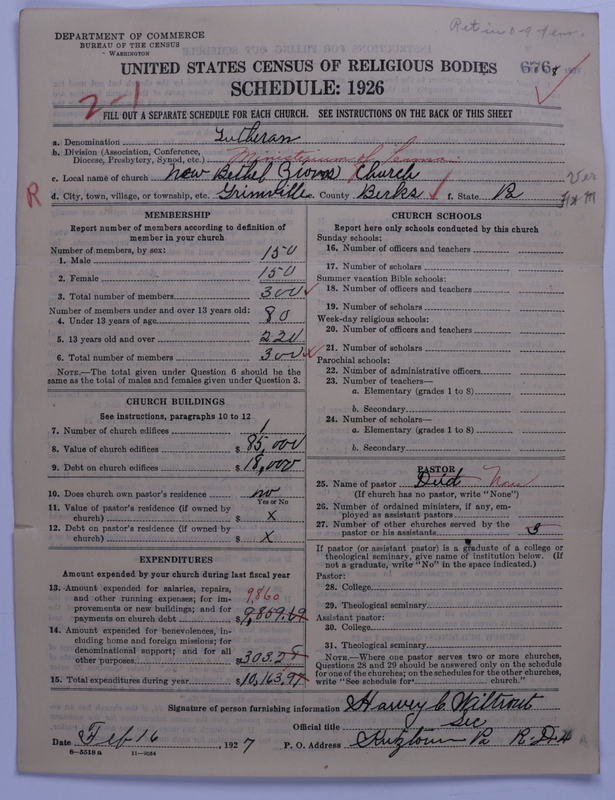 Ret in 0-9 Penn.
DEPARTMENT OF COMMERCE
BUREAU OF THE CENSUS
WASHINGTON
UNITED STATES CENSUS OF RELIGIOUS BODIES
676
SCHEDULE: 1926
2-1
FILL OUT A SEPARATE SCHEDULE FOR EACH CHURCH. SEE INSTRUCTIONS ON THE BACK OF THIS SHEET
a. Denomination Lutheran
b. Division (Association, Conference, Diocese, Presbytery, Synod, etc.) Ministerium of Penna.
c. Local name of church New Bethel (Zions) Church
R d. City, town, village, or township, etc. Grimville e. County Berks f. State Pa
MEMBERSHIP
Report number of members according to definition of
member in your church
Number of members, by sex:
1. Male 150
2. Female 150
3. Total number of members 300
Number of members under and over 13 years old:
4. Under 13 years of age 80
5. 13 years old and over 220
6. Total number of members 300
NOTE.—The total given under Question 6 should be
same as the total of males and females given under Question 3.
CHURCH BUILDINGS
See instructions, paragraphs 10 to 12
7. Number of church edifices 1
8. Value of church edifices $ 85,000
9. Debt on church edifices $ 18,000
10. Does church own pastor's residence no
Yes or No
11. Value of pastor's residence (if owned by
church) $ x
12. Debt on pastor's residence (if owned by
church) $ x
EXPENDITURES
Amount expended by your church during last fiscal year
13. Amount expended for salaries, repairs,
and other running expenses; for im-
provements or new buildings; and for
payments on church debt 9860 $ 9,859.69
14. Amount expended for benevolences, in-
cluding home and foreign missions; for
denominational support; and for all
other purposes $ 303.28
15. Total expenditures during year $ 10,163.97
CHURCH SCHOOLS
Report here only schools conducted by this church
Sunday schools:
16. Number of officers and teachers
17. Number of scholars
Summer vacation Bible schools:
18. Number of officers and teachers
19. Number of scholars
Week-day religious schools:
20. Number of officers and teachers
21. Number of scholars
Parochial schools:
22. Number of administrative officers
23. Number of teachers—
a. Elementary (grades 1 to 8)
b. Secondary
24. Number of scholars—
a. Elementary (grades 1 to 8)
b. Secondary
PASTOR
25. Name of pastor Died None
(If church has no pastor, write "None")
26. Number of ordained ministers, if any, em-
ployed as assistant pastors
27. Number of other churches served by the
pastor or his assistants 3
If pastor (or assistant pastor) is a graduate of a college or
theological seminary, give name of institution below. (If
not a graduate, write "No" in the space indicated.)
Pastor:
28. College
29. Theological seminary
Assistant pastor:
30. College
31. Theological seminary
NOTE.—Where one pastor serves two or more churches,
Questions 28 and 29 should be answered only on the schedule
for one of the churches; on the schedules for the other churches,
write "See schedule for church."
Signature of person furnishing information Harvey C. Wiltrout
Official title Sec
Date Feb 16 1927 P. O. Address Kutztown Pa
8-5518 a 11-9264